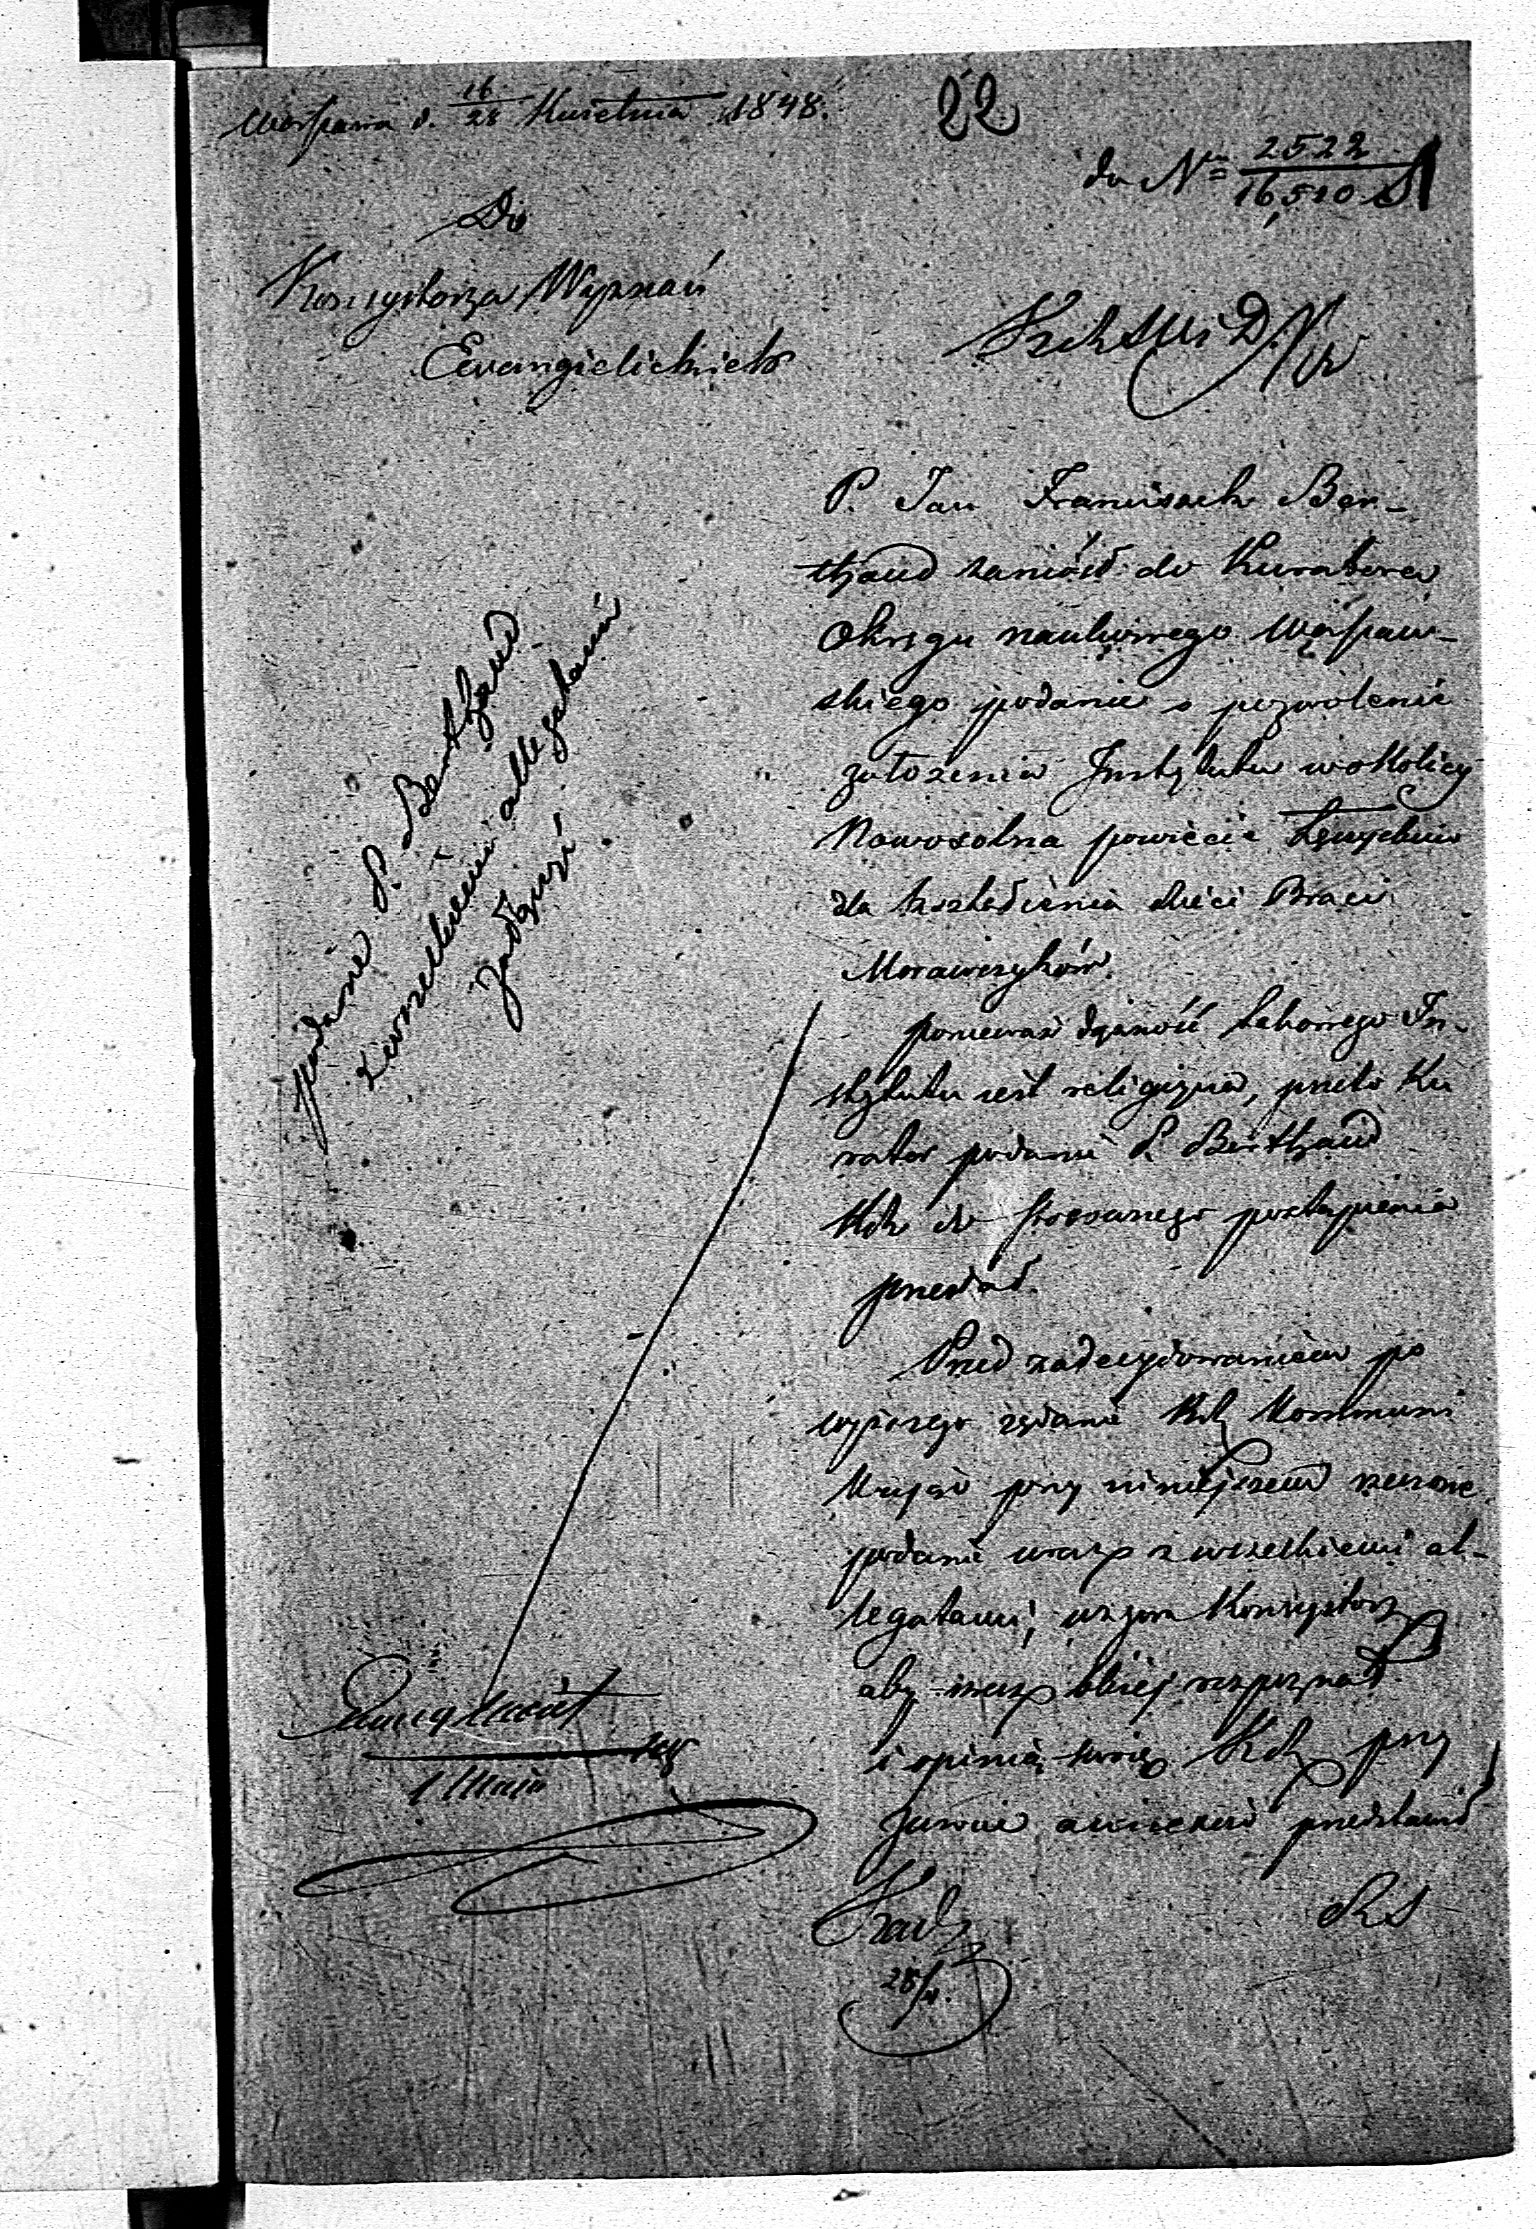 Warszawa d. 16/28 Kwietnia 1848.
22
do Nru 2522/16,510
Do
Konsystorza Wyznań
Ewangielickich
P. Jan Franciszek Ber-
thaud zaniósł do Kuratora
Okręgu naukowego Warszaw-
skiego podanie o pozwolenie
założenia Instytutu w okolicy
Nowosolna powiecie Łęczyckim
dla kształcenia dzieci Braci
Morawczyków.
ponieważ dążność takowego In-
stytutu jest religijna, przeto Ku
rator podanie P. Berthaud
do stosownego postąpienia
przesłał.
Przed zadecydowaniem po
wyższego żądania Kommuni
kując przy niniejszem rzeczone
podanie wraz z wszelkiemi al-
legatami, wzywa Konsystorz
aby rzecz bliżej rozpoznał
i opinią swoię przy
zwrocie przedstawił
podanie P. Berthaud
z wszelkiemi allegatami
załączyć
1 Maja
28/4.